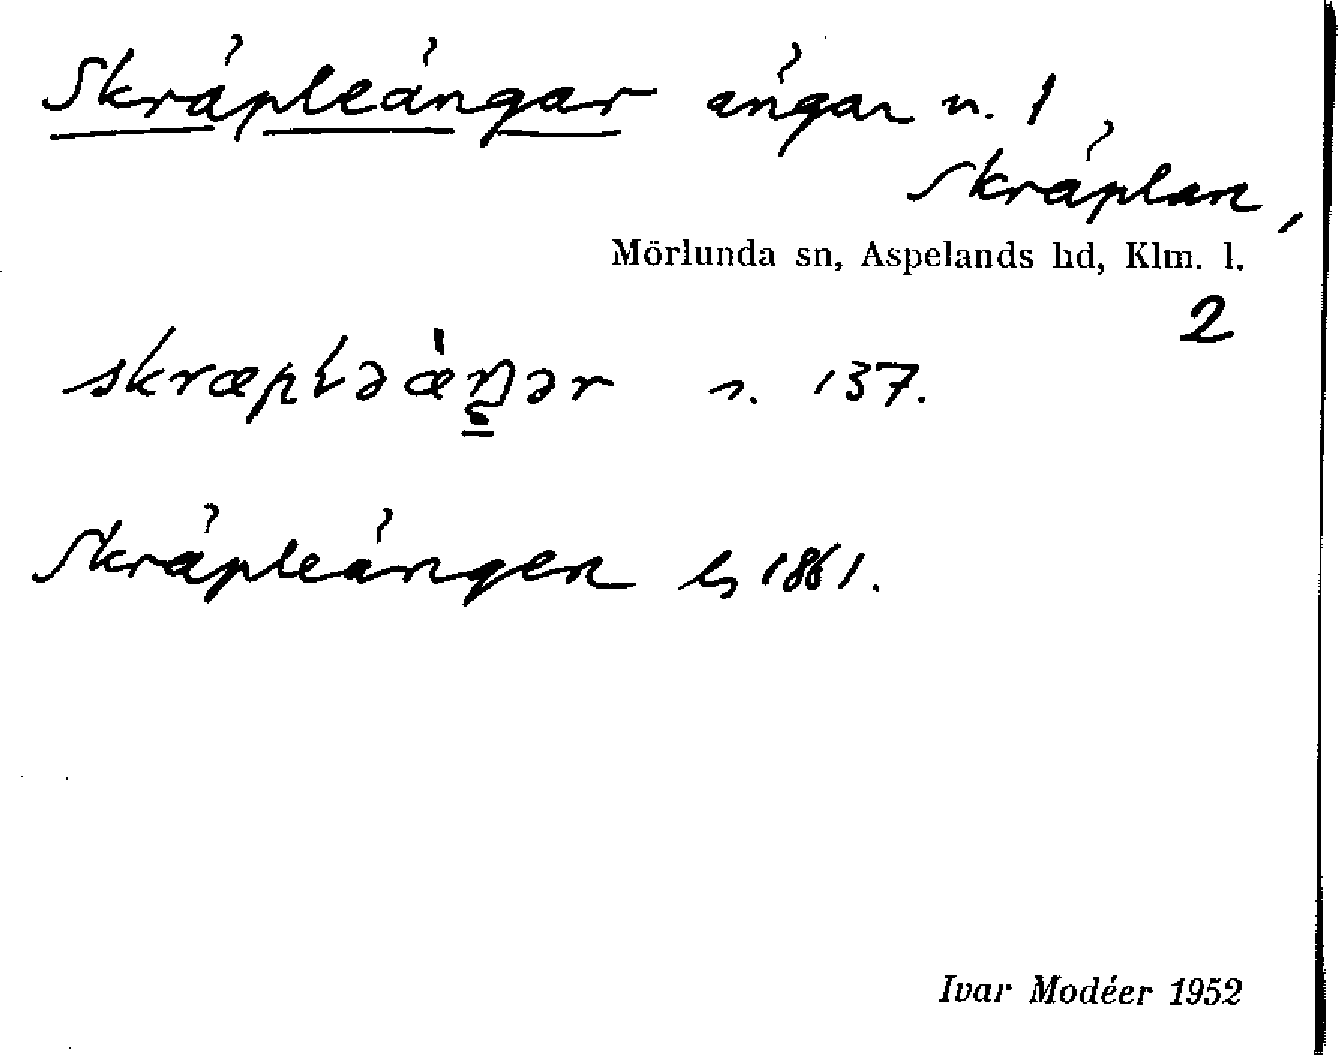 Skräpleängar ängar n. 1
Skräplan,
Mörlunda sn, Aspelands hd, Klm. l.
2
skræpləæ̀ŋər n. 137.
Skräpleängen 1861.
Ivar Modéer 1952